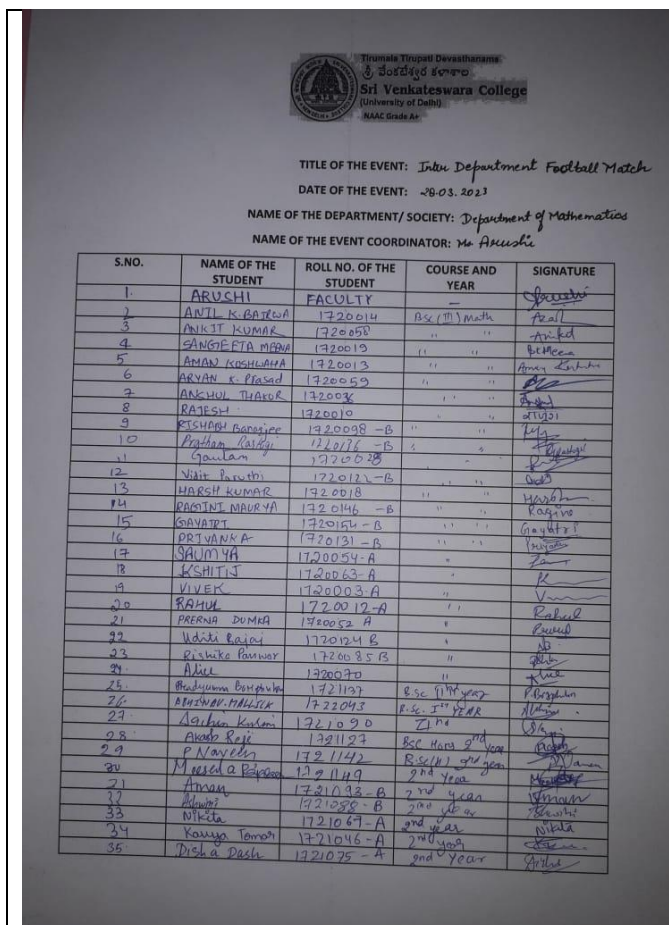 Tirumala Tirupati Devasthanams
శ్రీ వేంకటేశ్వర కళాశాల
Sri Venkateswara College
(University of Delhi)
NAAC Grade A+
TITLE OF THE EVENT: Inter Department Football Match
DATE OF THE EVENT: 28.03.2023
NAME OF THE DEPARTMENT/ SOCIETY: Department of Mathematics
NAME OF THE EVENT COORDINATOR: Ms Arushi
S.NO. NAME OF THE STUDENT ROLL NO. OF THE STUDENT COURSE AND YEAR SIGNATURE
1. ARUSHI FACULTY — Arushi
2 ANIL K. BAIRWA 1720014 Bsc (III) Math
3 ANKIT KUMAR 1720058 " " Ankit
4 SANGEETA MEENA 1720019 " "
5 AMAN KUSHWAHA 1720013 " " Aman
6 ARYAN K. Prasad 1720059 " "
7 ANCHUL THAKUR 1720036 " "
8 RAJESH 1720010 " "
9 RISHABH Banerjee 1720098 - B " "
10 Pratham Rastogi 1720136 - B " Rastogi
11 Gautam 1720028
12 Vidit Paruthi 1720122 - B " "
13 HARSH KUMAR 1720018 " " Harsh
14 RAGINI MAURYA 1720146 - B " " Ragini
15 GAYATRI 1720154 - B " " Gayatri
16 PRIYANKA 1720131 - B " " Priyanka
17 SAUMYA 1720054-A "
18 KSHITIJ 1720063-A " K
19 VIVEK 1720003-A " V
20 RAHUL 1720012-A " Rahul
21 PRERNA DUMKA 1720052 A "
22 Uditi Bajaj 1720124 B "
23 Rishika Panwar 1720085 B "
24. Alice 1720070 " Alice
25. 1721137 B.sc IInd year
26. ABHINAV MALLICK 1722043 B.Sc. Ist YEAR
27. Sachin 1721090 IInd
28. Akash 1721127 BSC HONS 2nd year
29 P Naveen 1721142 B.Sc(H) 2nd year
30 1721149 2nd Year
31 Aman 1721093 - B 2nd year Aman
32 Ashwini 1721088 - B 2nd year
33 Nikita 1721067 - A 2nd year Nikita
34 Kavya Tomar 1721046 - A 2nd year
35. Disha Dash 1721075 - A 2nd Year